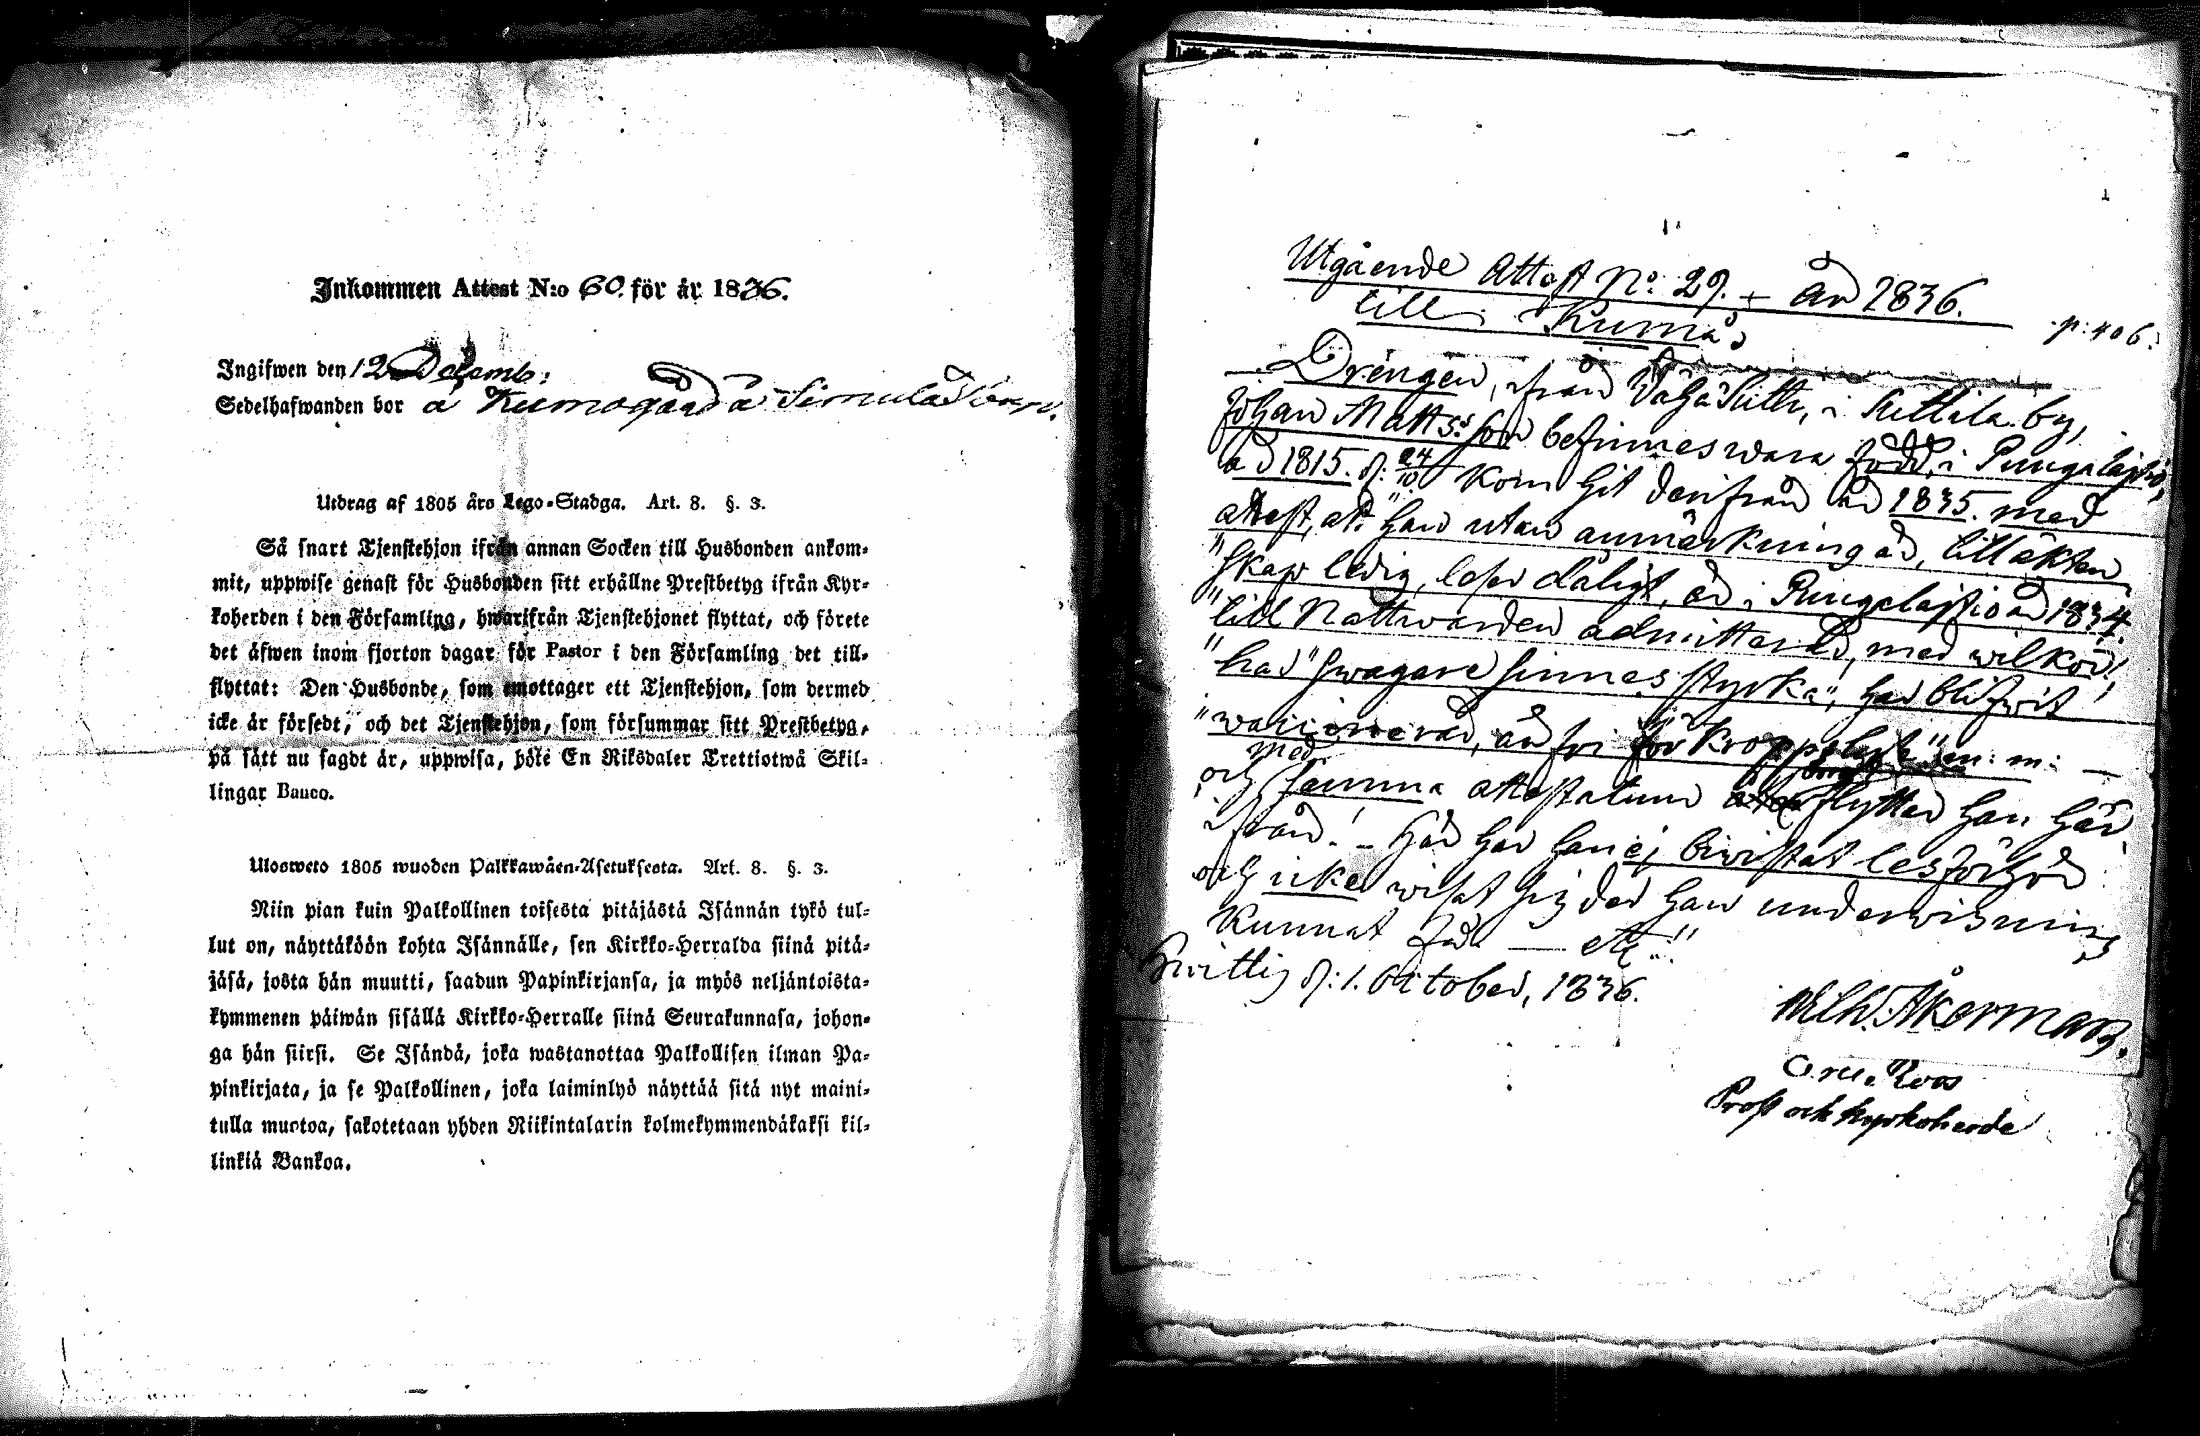 Inkommen Attest N:o 60. för år 1836.
Ingifwen den 12 Decemb:
Sedelhafwanden bor å Kumogård å
Utdrag af 1805 års Lego-Stadga. Art. 8. §. 3.
Så snart Tjenstehjon ifrån annan Socken till Husbonden ankom-
mit, uppwise genast för Husbonden sitt erhållne Prestbetyg ifrån Kyr-
koherden i den Församling, hwarifrån Tjenstehjonet flyttat, och förete
det äfwen inom fjorton dagar för Pastor i den Församling det till-
flyttat: Den Husbonde, som emottager ett Tjenstehjon, som dermed
icke är försedt, och det Tjenstehjon, som försummar sitt Prestbetyg,
på sätt nu sagdt är, uppwisa, böte En Riksdaler Trettiotwå Skil-
lingar Banco.
Ulosweto 1805 wuoden Palkkawäen-Asetuksesta. Art. 8. §. 3.
Niin pian kuin Palkollinen toisesta pitäjästä Isännän tykö tul-
lut on, näyttäköön kohta Isännälle, sen Kirkko-Herralda siinä pitä-
jäsä, josta hän muutti, saadun Papinkirjansa, ja myös neljäntoista-
kymmenen päiwän sisällä Kirkko-Herralle siinä Seurakunnasa, johon-
ga hän siirsi. Se Isändä, joka wastanottaa Palkollisen ilman Pa-
pinkirjata, ja se Palkollinen, joka laiminlyö näyttää sitä nyt maini-
tulla muotoa, sakotetaan yhden Riikintalarin kolmekymmendäkaksi kil-
linkiä Bankoa.
Utgående Attest No. 29. år 1836.
till Kumå p: 406.
Drengen, från i Kittila by,
Johan Matts: son befinnes wara född, i Pungalaitio,
år 1815. d: 24/10 Kom hit derifrån år 1835. med
attest, att "han utan anmärkning är, till ächten
"skap ledig, läser dåligt, är i Pungalaitio år 1834.
"till Nattwarden admitterad, med wilkor,
"har "swagare sinnes styrka", har blifwit
"waccinerad, är fri för Kroppslyte" m: m: —
och med samma attestatum flyttar han här
ifrån! — Här har han ej biwistat läsförhör
och icke wisat sig der han underwisning
Kunnat få — etc"
Hwittis d: 1. October, 1836.
Wilh. Åkerman.
Prost och kyrkoherde